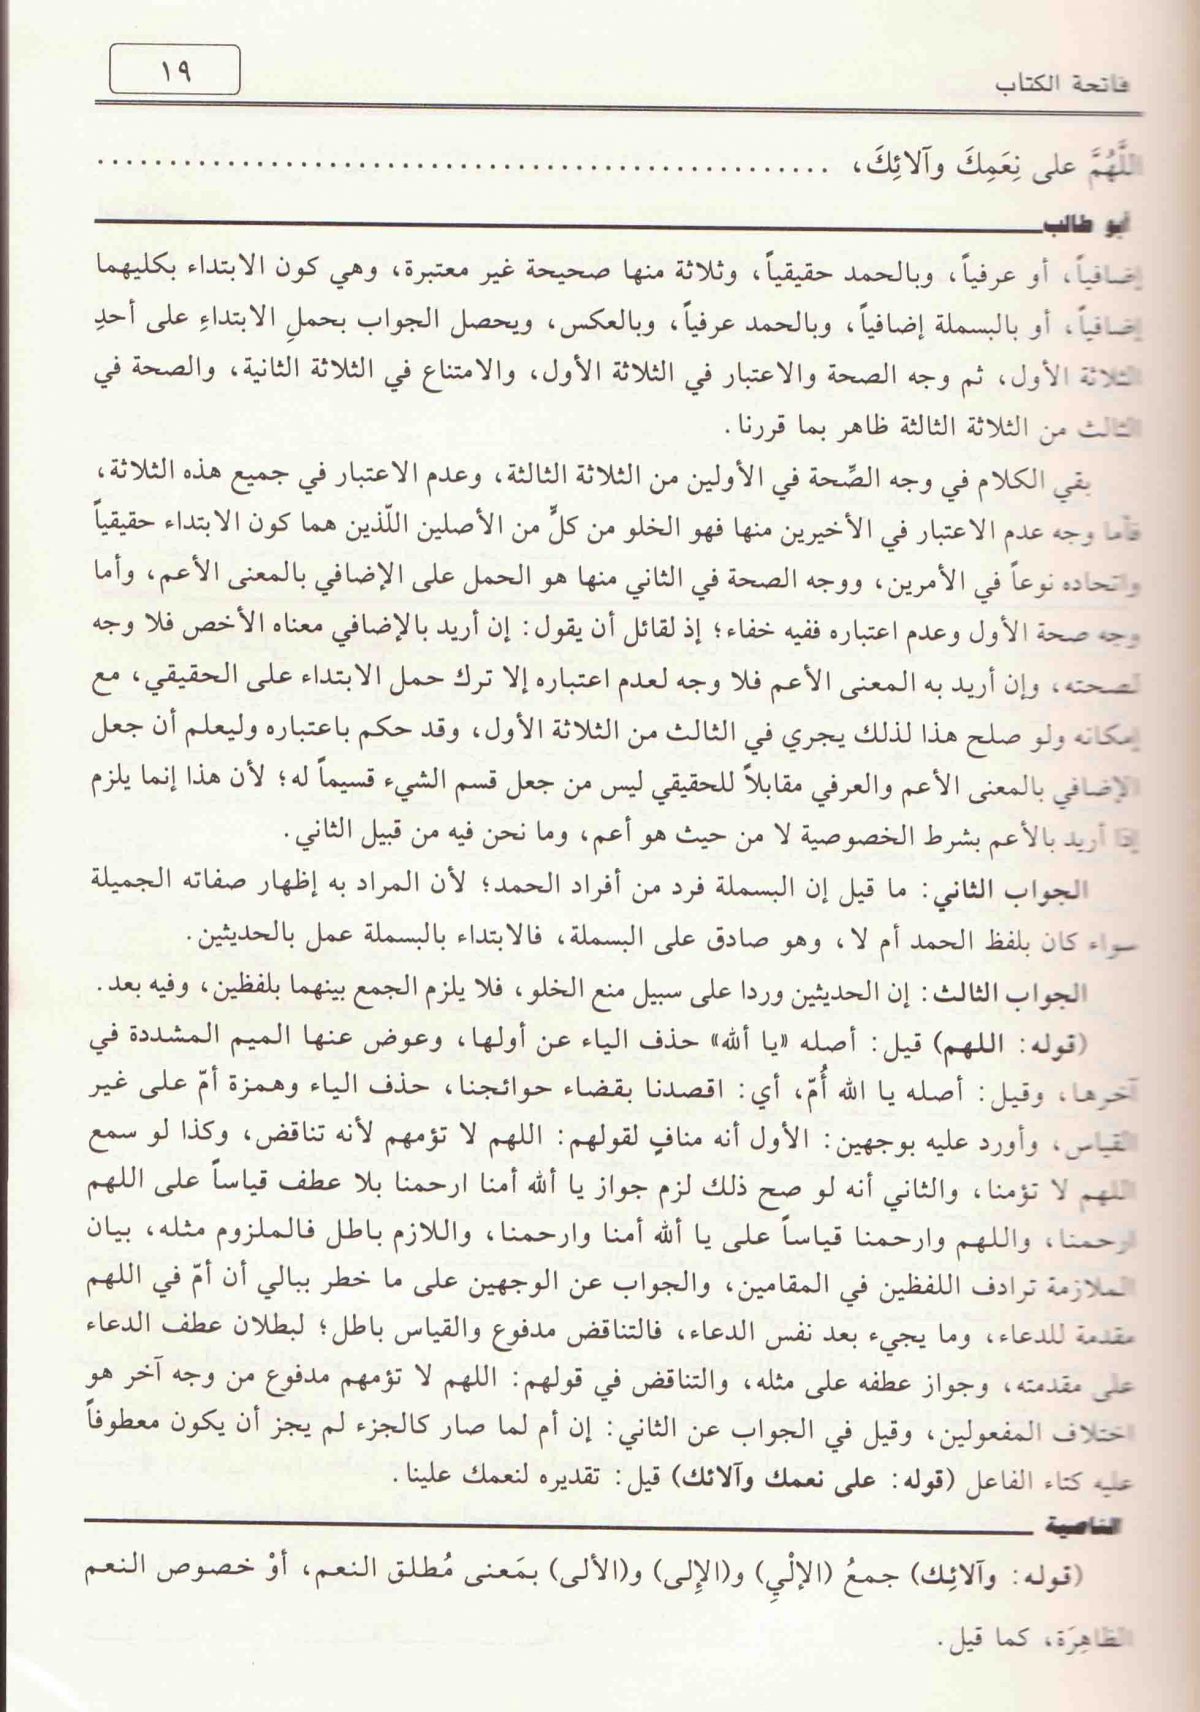 ١٩
فاتحة الكتاب
اللَّهُمَّ على نِعَمِكَ وآلائِكَ، ........................................
أبو طالب
إضافياً، أو عرفياً، وبالحمد حقيقياً، وثلاثة منها صحيحة غير معتبرة، وهي كون الابتداء بكليهما
إضافياً، أو بالبسملة إضافياً، وبالحمد عرفياً، وبالعكس، ويحصل الجواب بحملِ الابتداءِ على أحدِ
الثلاثة الأول، ثم وجه الصحة والاعتبار في الثلاثة الأول، والامتناع في الثلاثة الثانية، والصحة في
الثالث من الثلاثة الثالثة ظاهر بما قررنا.
بقي الكلام في وجه الصِّحة في الأولين من الثلاثة الثالثة، وعدم الاعتبار في جميع هذه الثلاثة،
فأما وجه عدم الاعتبار في الأخيرين منها فهو الخلو من كلٍّ من الأصلين اللّذين هما كون الابتداء حقيقياً
واتحاده نوعاً في الأمرين، ووجه الصحة في الثاني منها هو الحمل على الإضافي بالمعنى الأعم، وأما
وجه صحة الأول وعدم اعتباره ففيه خفاء؛ إذ لقائل أن يقول: إن أريد بالإضافي معناه الأخص فلا وجه
لصحته، وإن أريد به المعنى الأعم فلا وجه لعدم اعتباره إلا ترك حمل الابتداء على الحقيقي، مع
إمكانه ولو صلح هذا لذلك يجري في الثالث من الثلاثة الأول، وقد حكم باعتباره وليعلم أن جعل
الإضافي بالمعنى الأعم والعرفي مقابلاً للحقيقي ليس من جعل قسم الشيء قسيماً له؛ لأن هذا إنما يلزم
إذا أريد بالأعم بشرط الخصوصية لا من حيث هو أعم، وما نحن فيه من قبيل الثاني.
الجواب الثاني: ما قيل إن البسملة فرد من أفراد الحمد؛ لأن المراد به إظهار صفاته الجميلة
سواء كان بلفظ الحمد أم لا، وهو صادق على البسملة، فالابتداء بالبسملة عمل بالحديثين.
الجواب الثالث: إن الحديثين وردا على سبيل منع الخلو، فلا يلزم الجمع بينهما بلفظين، وفيه بعد.
(قوله: اللهم) قيل: أصله «يا ألله» حذف الياء عن أولها، وعوض عنها الميم المشددة في
آخرها، وقيل: أصله يا الله أُمّ، أي: اقصدنا بقضاء حوائجنا، حذف الياء وهمزة أمّ على غير
القياس، وأورد عليه بوجهين: الأول أنه منافٍ لقولهم: اللهم لا تؤمهم لأنه تناقض، وكذا لو سمع
اللهم لا تؤمنا، والثاني أنه لو صح ذلك لزم جواز يا ألله أمنا ارحمنا بلا عطف قياساً على اللهم
ارحمنا، واللهم وارحمنا قياساً على يا ألله أمنا وارحمنا، واللازم باطل فالملزوم مثله، بيان
الملازمة ترادف اللفظين في المقامين، والجواب عن الوجهين على ما خطر ببالي أن أمّ في اللهم
مقدمة للدعاء، وما يجيء بعد نفس الدعاء، فالتناقض مدفوع والقياس باطل؛ لبطلان عطف الدعاء
على مقدمته، وجواز عطفه على مثله، والتناقض في قولهم: اللهم لا تؤمهم مدفوع من وجه آخر هو
اختلاف المفعولين، وقيل في الجواب عن الثاني: إن أم لما صار كالجزء لم يجز أن يكون معطوفاً
عليه كتاء الفاعل (قوله: على نعمك وآلائك) قيل: تقديره لنعمك علينا.
الناصية
(قوله: وآلائِك) جمعُ (الإلْيِ) و(الإِلى) و(الألى) بمَعنى مُطلق النعم، أوْ خصوص النعم
الظاهِرَة، كما قيل.